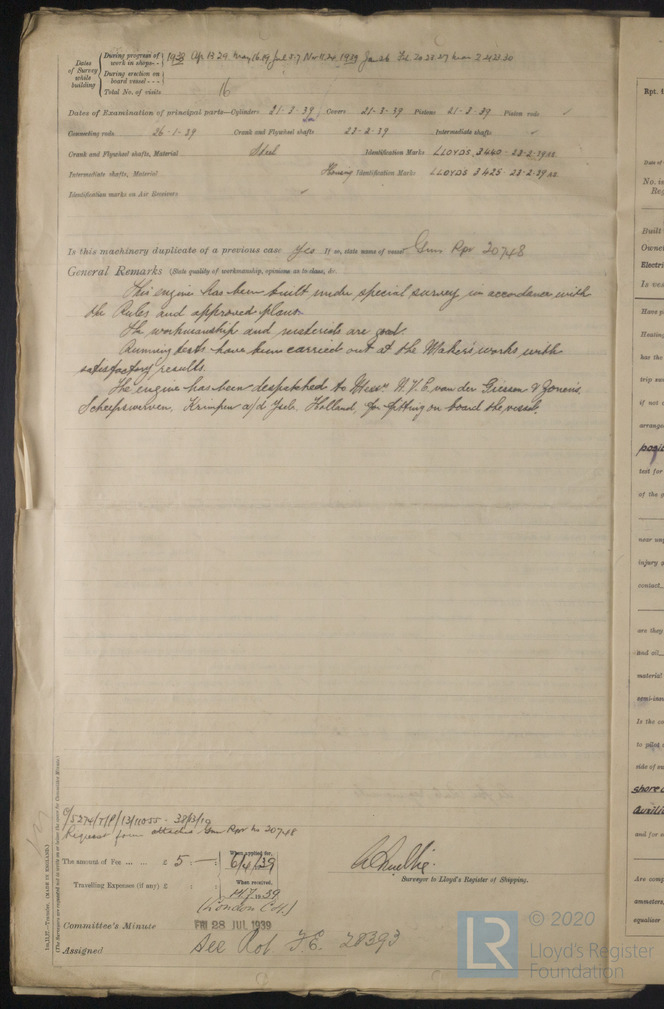 Dates of Survey while building
During progress of work in shops - - 1938 Apr 13.29 May 16.19 Jul 5.17 Nov 11.24 1939 Jan 26 Feb 20.23.27 Mar 2.4.23.30
During erection on board vessel - - -
Total No. of visits 16
Dates of Examination of principal parts—Cylinders 21-3-39 Covers 21-3-39 Pistons 21-3-39 Piston rods ✓
Connecting rods 26-1-39 Crank and Flywheel shafts 23-2-39 Intermediate shafts ✓
Crank and Flywheel shafts, Material Steel Identification Marks LLOYDS. 3440 - 23-2-39
Intermediate shafts, Material Housing Identification Marks LLOYDS 3425 - 23-2-39
Identification marks on Air Receivers ✓
Is this machinery duplicate of a previous case Yes If so, state name of vessel Rpr 20748
General Remarks (State quality of workmanship, opinions as to class, &c.
This engine has been built under special survey in accordance with
the Rules and approved plans.
The workmanship and materials are good.
Running tests have been carried out at the Makers works with
satisfactory results.
The engine has been despatched to Messrs N.V. C. van der Giessen & Zonens
Scheepswerven, Krimpen a/d Ysel, Holland, for fitting on board the vessel.
Request form attached Rpr No 20748
The amount of Fee ... ... £ 5 : — :
When applied for, 6/4/39
Travelling Expenses (if any) £ : :
When received, 14.7.39
(London C.H.)
Surveyor to Lloyd's Register of Shipping.
Committee's Minute FRI 28 JUL 1939
Assigned See Rot. F.E. 28393
(MADE IN ENGLAND.)
Rpt.
Date of
No. in
Reg
Built
Owner
Electri
Is ves
Have p
Heating
has the
trip
if not
arrange
test for
of the p
near
injury
contact
are they
and oil
material
semi-
Is the
to
side of
shore
Auxili
and for
Are
ammeters,
equaliser
LR
© 2020
Lloyd's Register
Foundation